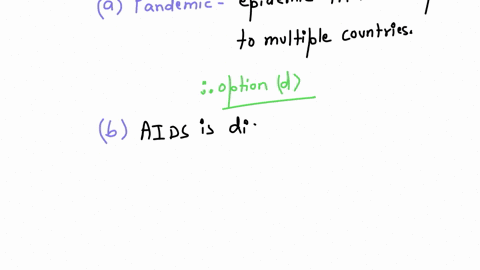 (a) Pandemic - epidemic
to multiple countries.
∴ option (d)
(b) AIDS is di